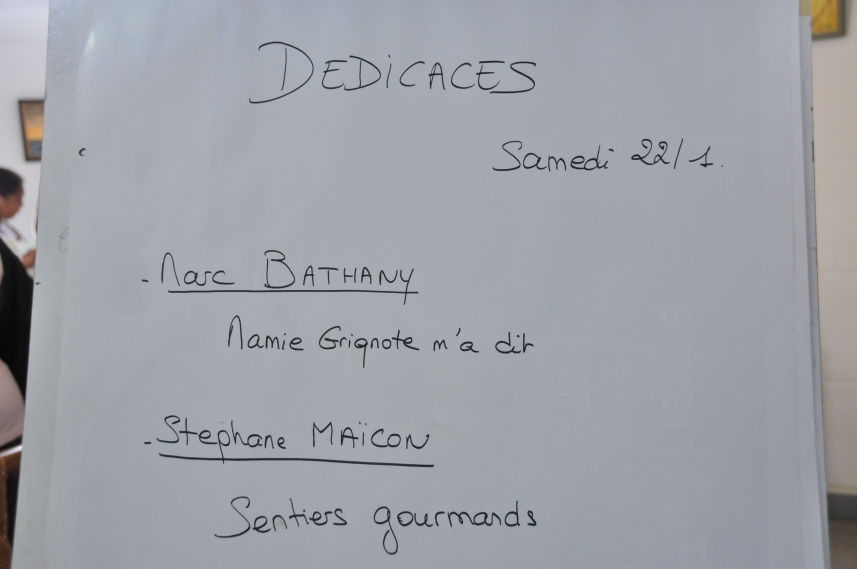 DEDICACES
Samedi 22/1.
- Marc BATHANY
Mamie Grignote m'a dit
- Stephane MAÏCON
Sentiers gourmands